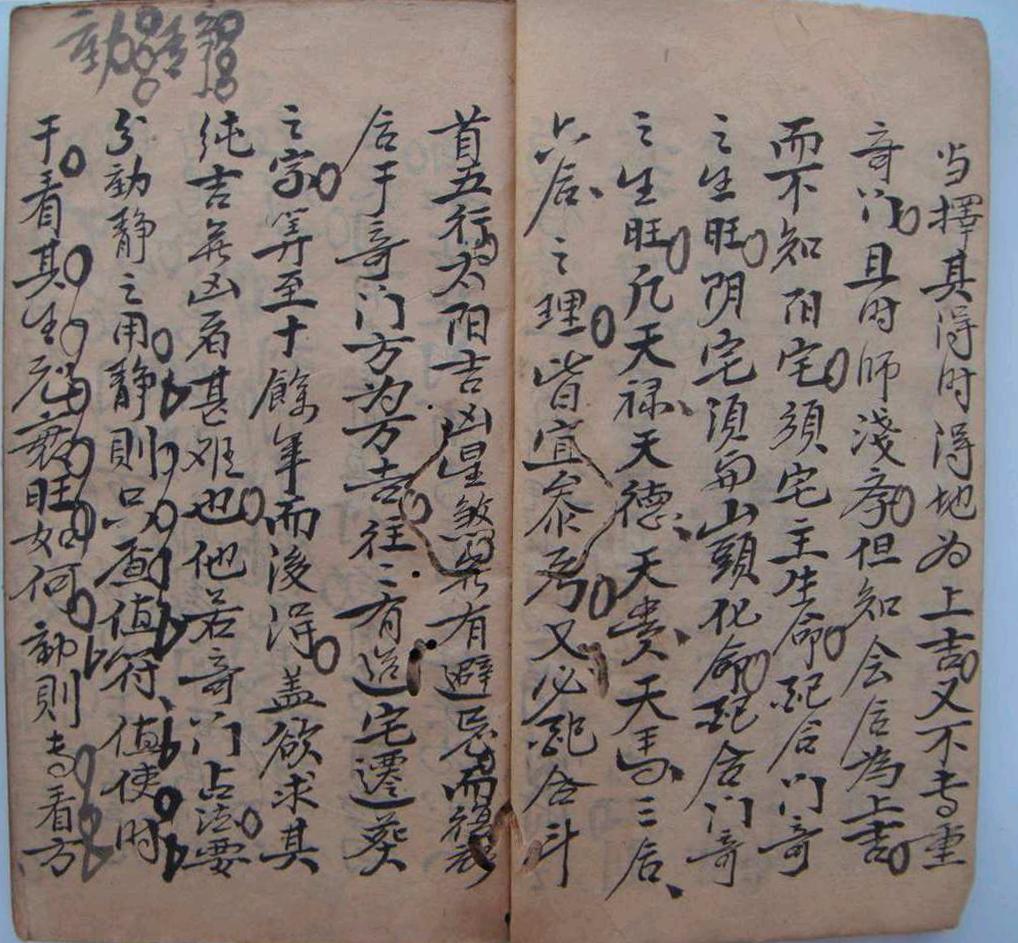 当擇其得时得地为上吉又不专重
奇门且时师淺序但知会合為上吉
而不知阳宅須宅主生命配合门奇
之生旺阴宅須与山頭化命配合门奇
之生旺凡天禄天德天贵天马三合
六合之理皆宜参考又必配合斗
首五行太阳吉凶星煞無有避忌而後
合于奇门方为万吉往二有造宅遷葵
之家笄至十餘年而後得盖欲求其
纯吉無凶者甚难也他若奇门占法要
分動静之用静則只查值符值使时
干看其生尅衰旺如何動則专看方